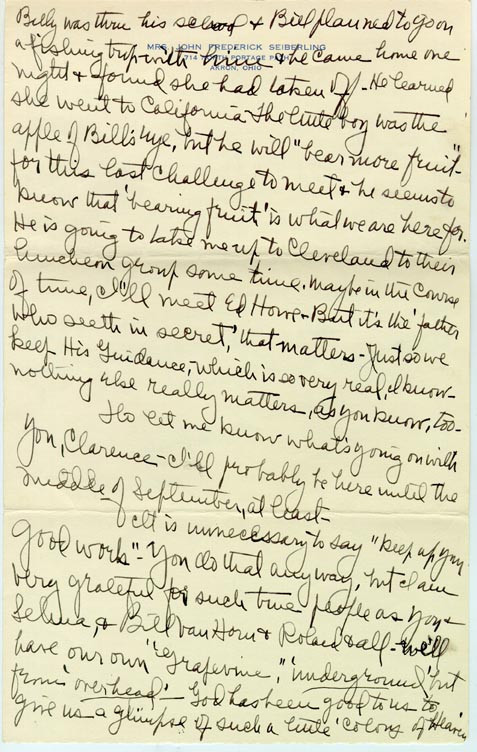 Billy was thru his school & Bill planned to go on
MRS. JOHN FREDERICK SEIBERLING
a fishing trip with & he came home one
714 NORTH PORTAGE PATH
AKRON, OHIO
night & found she had taken off - He learned
she went to California - The little boy was the
apple of Bill's eye, but he will "bear more fruit"
for this last challenge to meet & he seems to
know that 'bearing fruit' is what we are here for.
He is going to take me up to Cleveland to their
luncheon group some time. Maybe in the course
of time, I'll meet Ed Howe - But it's the 'father
who seeth in secret,' that matters - Just so we
keep His Guidance, - which is so very real, I know -
nothing else really matters, as you know, too -
Do let me know what's going on with
you, Clarence - I'll probably be here until the
middle of September, at least -
It is unnecessary to say "keep up your
good work" - You do that anyway, but I am
very grateful for such true people as you &
Selma, & Bill Van Horn & Roland & all - we'll
have our own 'Grapevine,' 'underground' but
from 'overhead' - God has been good to us to
give us a glimpse of such a little 'Colony of Heaven